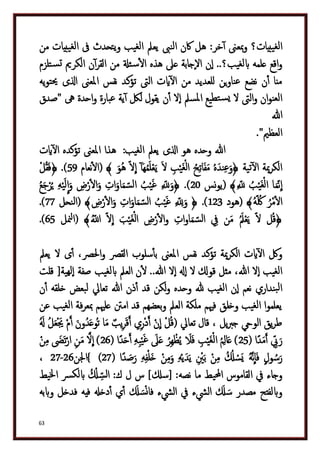 الغيبيات؟ وبمعنى آخر: هل كان النبى يعلم الغيب ويتحدث فى الغيبيات من
واقع علمه بالغيب؟.. إن الإجابة على هذه الأسئلة من القرآن الكريم تستلزم
منا أن نضع عناوين للعديد من الآيات التى تؤكد نفس المعنى الذى يحتويه
العنوان والتى لا يستطيع المسلم إلا أن يقول لكل آية عبارة واحدة هى "صدق
الله
العظيم".
الله وحده هو الذى يعلم الغيب: هذا المعنى تؤكده الآيات
الكريمة الآتية ﴿وَعِندَهُ مَفَاتِحُ الْغَيْبِ لَا يَعْلَمُهَا إِلَّا هُوَ ﴾ (الأنعام 59). ﴿فَقُلْ
إِنَّمَا الْغَيْبُ لِلَّهِ﴾ (يونس 20). ﴿وَلِلَّهِ غَيْبُ السَّمَاوَاتِ وَالْأَرْضِ وَإِلَيْهِ يُرْجَعُ
الْأَمْرُ كُلُّهُ﴾ (هود 123). ﴿ وَلِلَّهِ غَيْبُ السَّمَاوَاتِ وَالْأَرْضِ﴾ (النحل 77).
﴿قُل لَّا يَعْلَمُ مَن فِي السَّمَاواتِ وَالْأَرْضِ الْغَيْبَ إِلَّا اللهُ﴾ (النمل 65).
وكل الآيات الكريمة تؤكد نفس المعنى بأسلوب القصر والحصر، أى لا يعلم
الغيب إلا الله، مثل قولك لا إله إلا الله.. لأن العلم بالغيب صفة إلهية[ قلت
البنداري نعم إن الغيب لله وحده ولكن قد أذن الله تعالي لبعض خلقه أن
يعلموا الغيب وخلق فيهم ملكة العلم وبعضهم قد امتن عليهم بمعرفة الغيب عن
طريق الوحي جبريل ، قال تعالي (قُلْ إِنْ أَدْرِي أَقَرِيبٌ مَا تُوعَدُونَ أَمْ يَجْعَلُ لَهُ
رَبِّي أَمَدًا (25) عَالِمُ الْغَيْبِ فَلَا يُظْهِرُ عَلَى غَيْبِهِ أَحَدًا (26) إِلَّا مَنِ ارْتَضَى مِنْ
رَسُولٍ فَإِنَّهُ يَسْلُكُ مِنْ بَيْنِ يَدَيْهِ وَمِنْ خَلْفِهِ رَصَدًا (27) }الجن26-27 ،
وجاء في القاموس المحيط ما نصه: [سلك] س ل ك: السِّلْكُ بالكسر الخيط
وبالفتح مصدر سَلَكَ الشيء في الشيء فَانْسَلَكَ أي أدخله فيه فدخل وبابه
63